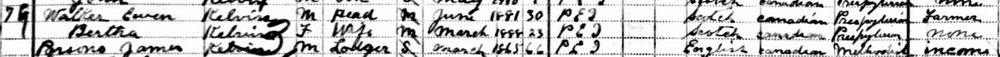 79 Walker Ewen Kelvin M Head M June 1881 30 P E I Scotch Canadian Presbyterian Farmer
Bertha Kelvin F Wife M March 1888 23 P E I Scotch Canadian Presbyterian none
James Kelvin M Lodger S March 1865 P E I English Canadian Methodist income